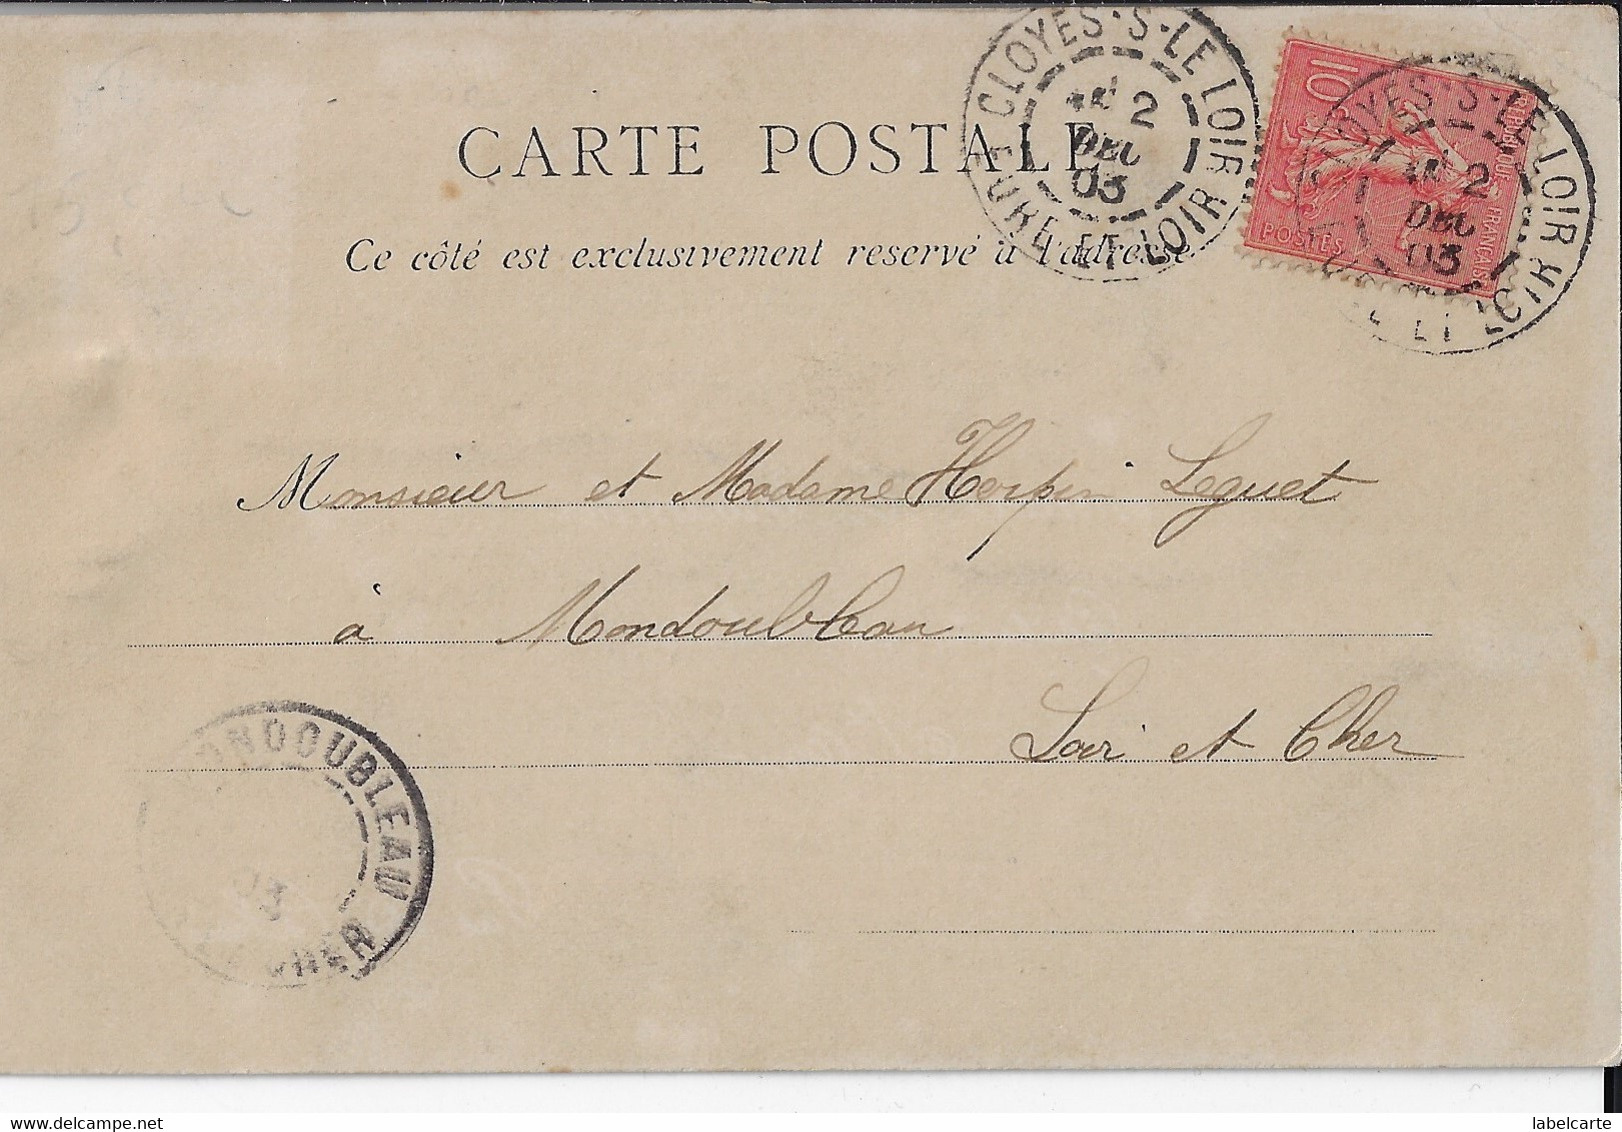 CLOYES-S-LE LOIR
2
DEC
03
EURE ET LOIR
10
REPUBLIQUE FRANÇAISE
POSTES
CLOYES-S-LE LOIR
2
DEC
03
ET LOIR
CARTE POSTALE
Ce côté est exclusivement reservé à l'adresse
Monsieur et Madame Herpin Leguet
à Mondoubleau
Loir et Cher
MONDOUBLEAU
03
CHER
delcampe.net
labelcarte